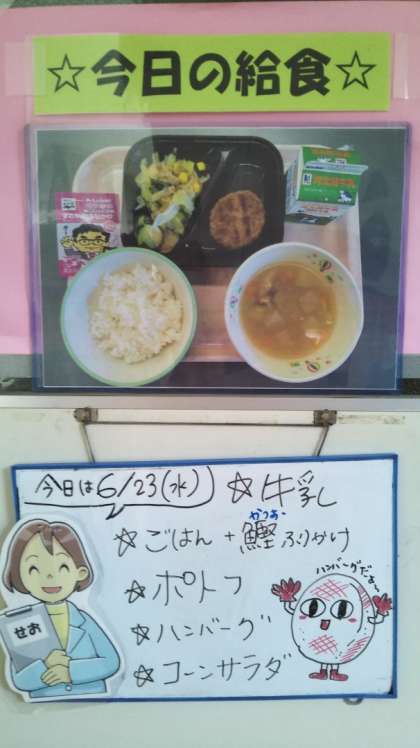 ☆今日の給食☆
今日は 6/23(水)
☆牛乳
かつお
☆ごはん + 鰹ふりかけ
☆ポトフ
☆ハンバーグ
☆コーンサラダ
ハンバーグだよ〜
せお